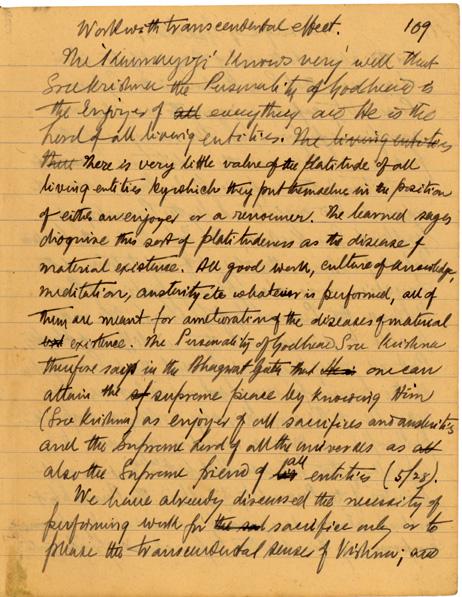 Work with transcendental effect. 109
The 'Karmayogi' knows very well that
Sree Krishna the Personality of Godhead is
the Enjoyer of all everything and He is the
Lord of all living entities. The living entities
There is very little value of the platitude of all
living entities by which they put themselves in the position
of either an enjoyer or a renouncer. The learned sages
disgnise this sort of platitudeness as the disease of
material existence. All good work, culture of knowledge,
meditation, austerity etc whatever is performed, all of
them are meant for amelioration of the diseases of material
existence. The Personality of Godhead Sree Krishna
therefore says in the Bhagwat Geeta that one can
attain the supreme peace by knowing Him
(Sree Krishna) as enjoyer of all sacrifices and austerities
and the Supreme Lord of all the universes as all
also the Supreme friend of all entities (5/28).
We have already discussed the necessity of
performing work for the sacrifice only or to
please the transcendental sense of Vishnu; and